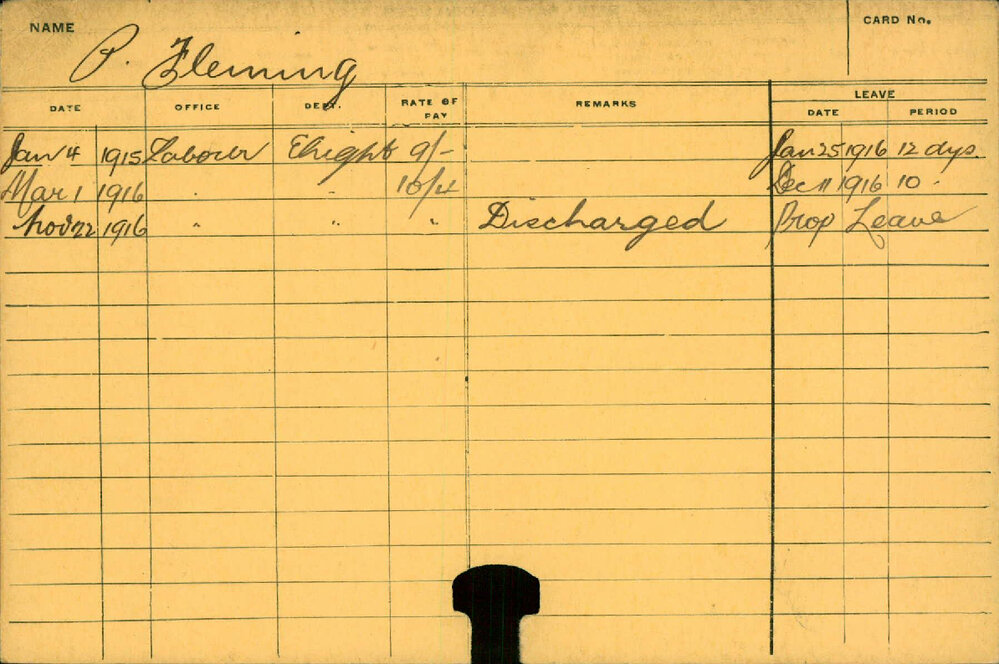 NAME P. Fleming CARD No.
DATE OFFICE DEPT. RATE OF PAY REMARKS LEAVE DATE PERIOD
Jan 4 1915 Labour Elight 9/- Jan 25 1916 12 dys.
Mar 1 1916 " 10/4 Dec 11 1916 10 "
Nov 22 1916 " " " Discharged Prop Leave